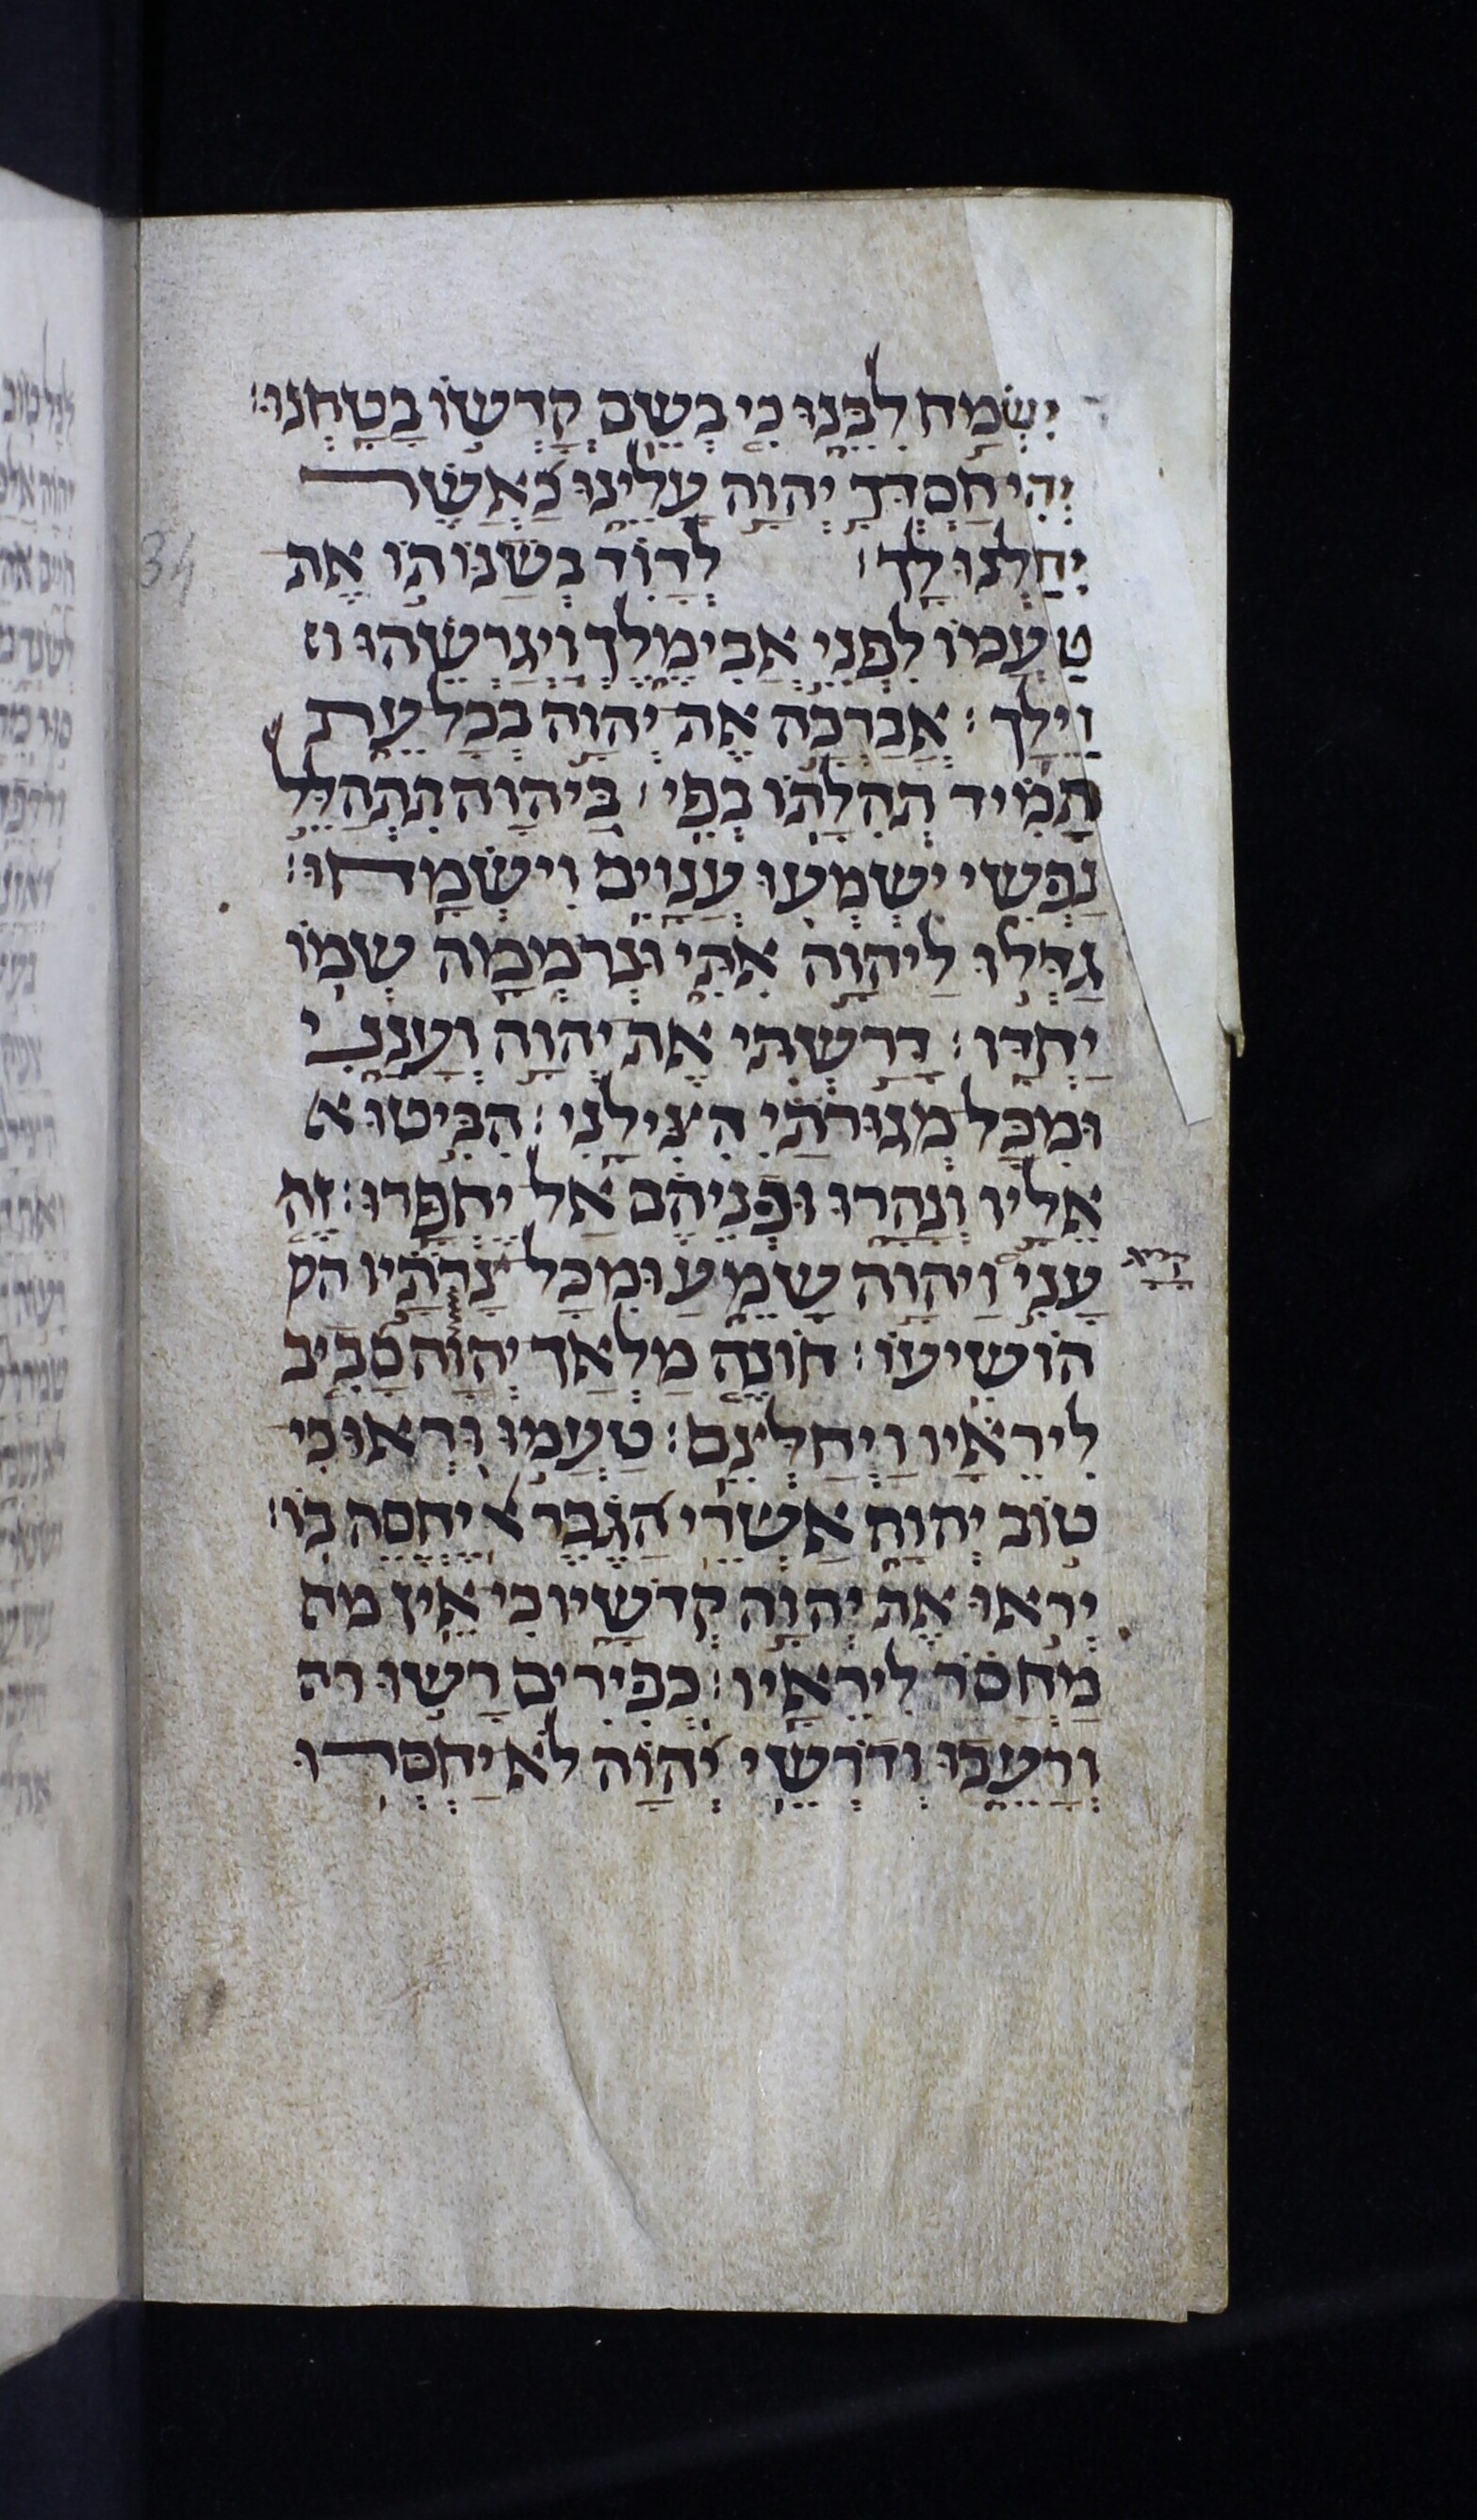 יִשְׂמַח לִבֵּנוּ כִּי בְשֵׁם קָדְשׁוֹ בָטָחְנוּ׃
יְהִי חַסְדְּךָ יְהוָה עָלֵינוּ כַּאֲשֶׁר
יִחַלְנוּ לָךְ׃ לְדָוִד בְּשַׁנּוֹתוֹ אֶת
טַעְמוֹ לִפְנֵי אֲבִימֶלֶךְ וַיְגָרְשֵׁהוּ וי
וַיֵּלַךְ׃ אֲבָרְכָה אֶת יְהוָה בְּכָל עֵת
תָּמִיד תְּהִלָּתוֹ בְּפִי׃ בַּיהוָה תִּתְהַלֵּל
נַפְשִׁי יִשְׁמְעוּ עֲנָוִים וְיִשְׂמָחוּ׃
גַּדְּלוּ לַיהוָה אִתִּי וּנְרֹמְמָה שְׁמוֹ
יַחְדָּו׃ דָּרַשְׁתִּי אֶת יְהוָה וְעָנָנִי
וּמִכָּל מְגוּרֹתַי הִצִּילָנִי׃ הִבִּיטוּ א
אֵלָיו וְנָהָרוּ וּפְנֵיהֶם אַל יֶחְפָּרוּ׃ זֶה
עָנִי וַיהוָה שָׁמֵעַ וּמִכָּל צָרֹתָיו הק
קרא
הוֹשִׁיעוֹ׃ חוֹנֶה מַלְאַךְ יְהוָה סָבִיב
לִירֵאָיו וַיְחַלְּצֵם׃ טַעֲמוּ וּרְאוּ כִּי
טוֹב יְהוָה אַשְׁרֵי הַגֶּבֶר יֶחֱסֶה בּוֹ׃
יְראוּ אֶת יְהוָה קְדֹשָׁיו כִּי אֵין מח
מַחְסֹר לִירֵאָיו׃ כְּפִירִים רָשׁוּ ור
וְרָעֵבוּ וְדֹרְשֵׁי יְהוָה לֹא יַחְסְרוּ
34